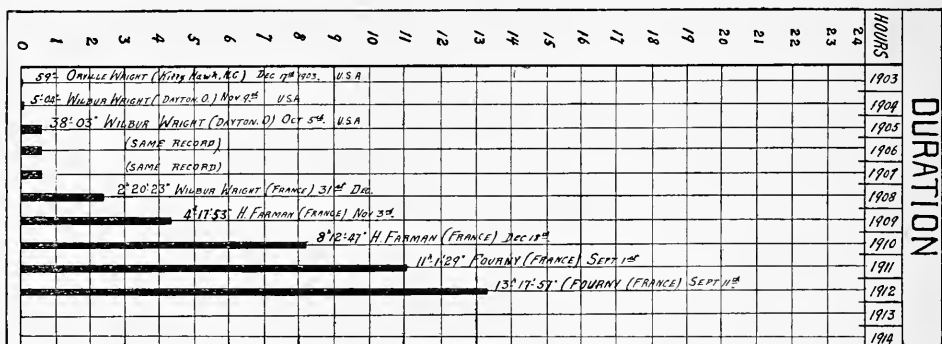 0 1 2 3 4 5 6 7 8 9 10 11 12 13 14 15 16 17 18 19 20 21 22 23 24 HOURS
DURATION
59" ORVILLE WRIGHT (Kitty Hawk. N.C) DEC 17th 1903. U.S.A 1903
5'-04" WILBUR WRIGHT (DAYTON. O.) NOV 9th U.S.A 1904
38'-03" WILBUR WRIGHT (DAYTON. O) OCT 5th. U.S.A 1905
(SAME RECORD) 1906
(SAME RECORD) 1907
2h 20'-23" WILBUR WRIGHT (FRANCE) 31st DEC. 1908
4h-17'-53" H. FARMAN (FRANCE) NOV 3rd. 1909
8h 12'-47" H. FARMAN (FRANCE) DEC 18th 1910
11h-1'-29" FOURNY (FRANCE) SEPT 1st 1911
13h 17'-57" (FOURNY (FRANCE) SEPT 11th 1912
1913
1914